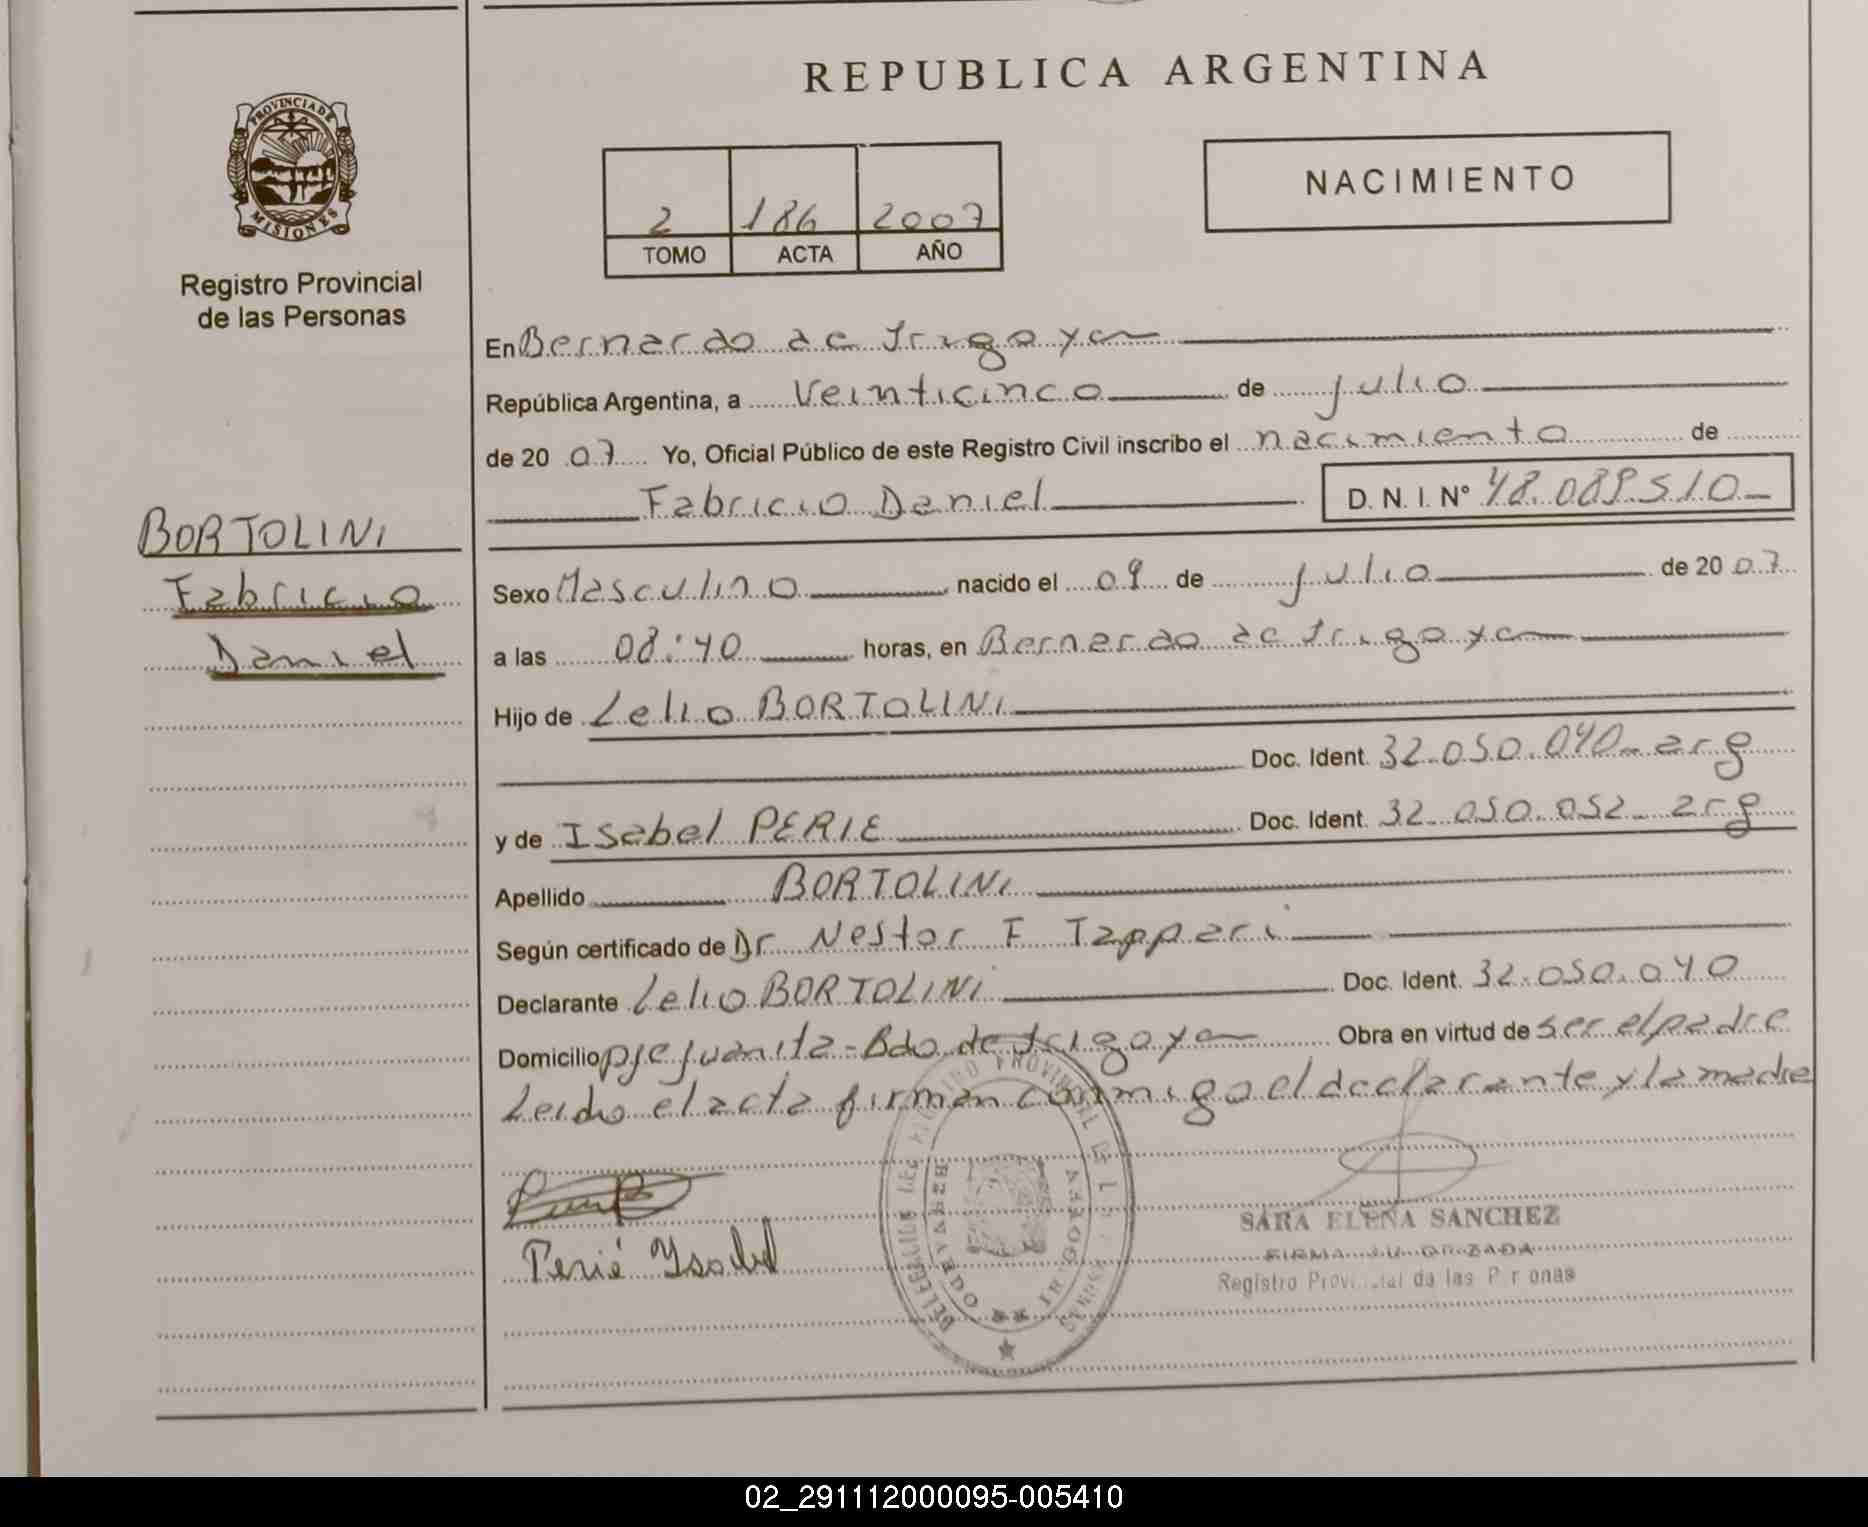 REPUBLICA ARGENTINA
PROVINCIA DE
MISIONES
Registro Provincial
de las Personas
2 186 2007
TOMO ACTA AÑO
NACIMIENTO
En Bernardo de Irigoyen
República Argentina, a Veinticinco de julio
de 20 07 Yo, Oficial Público de este Registro Civil inscribo el nacimiento de
Fabricio Daniel D. N. I. N° 48.089.510
BORTOLINI
Fabricio
Daniel
Sexo Masculino nacido el 09 de julio de 20 07
a las 08:40 horas, en Bernardo de Irigoyen
Hijo de Lelio BORTOLINI
Doc. Ident. 32.050.040 arg
y de Isabel PERIE Doc. Ident. 32.050.052 arg
Apellido BORTOLINI
Según certificado de Dr Nestor F Tappari
Declarante Lelio BORTOLINI Doc. Ident. 32.050.040
Domicilio pje juanita - Bdo de Irigoyen Obra en virtud de ser el padre
Leido el acta firman conmigo el declarante y la madre
Perié Ysabel
SARA ELENA SANCHEZ
FIRMA AUTORIZADA
Registro Provincial de las Personas
BERNARDO DE IRIGOYEN
02_291112000095-005410